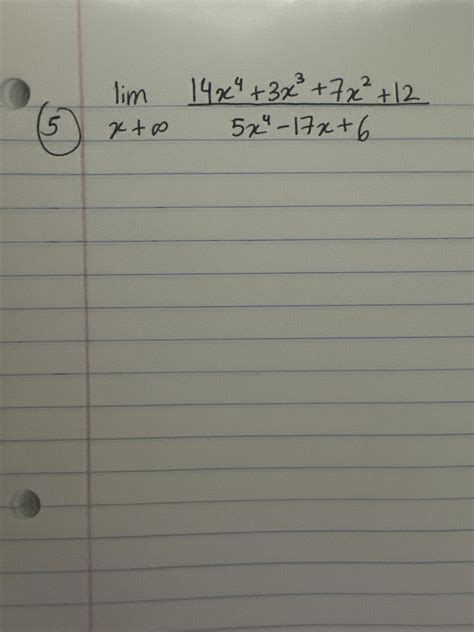 lim 14x⁴+3x³+7x²+12
(5) x+∞ 5x⁴-17x+6